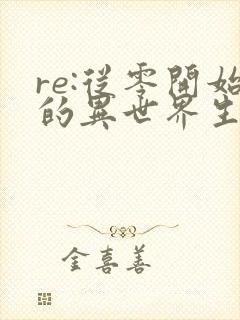 re:從零開始
的異世界生
金喜善